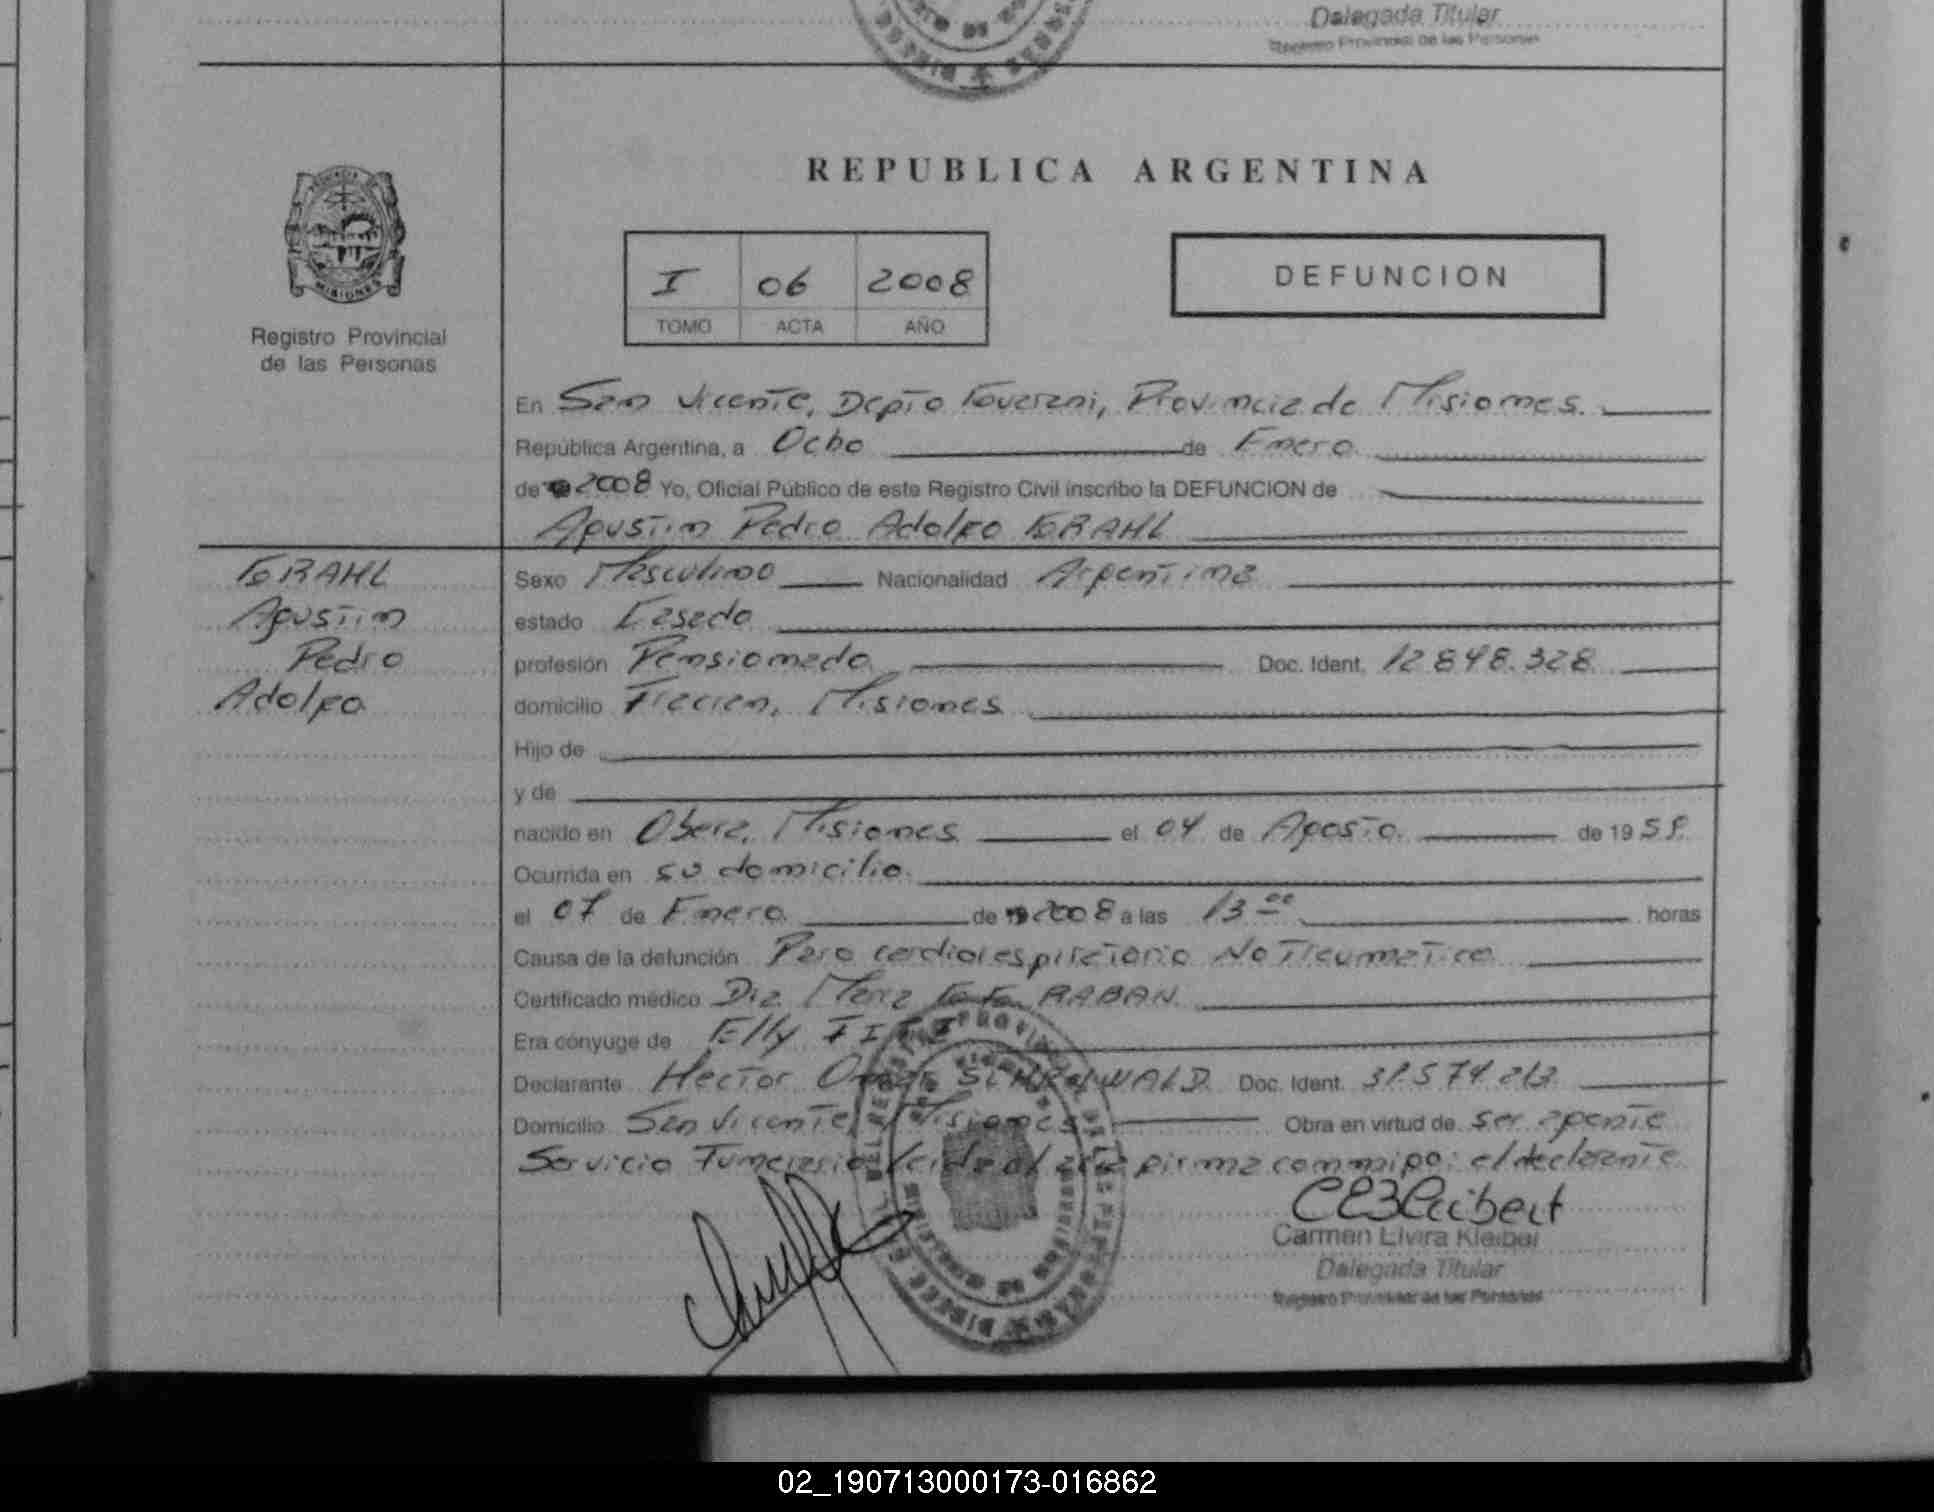 Delegada Titular
Registro Provincial de las Personas
REPUBLICA ARGENTINA
PROVINCIA DE
MISIONES
Registro Provincial
de las Personas
I 06 2008
TOMO ACTA AÑO
DEFUNCION
En San Vicente, Depto Guarani, Provincia de Misiones.
República Argentina, a Ocho de Enero
de 2008 Yo, Oficial Público de este Registro Civil inscribo la DEFUNCION de
Agustin Pedro Adolfo GRAHL
GRAHL
Agustin
Pedro
Adolfo
Sexo Masculino Nacionalidad Argentina
estado Casado
profesión Pensionado Doc. Ident. 12.848.328
domicilio Fracran, Misiones
Hijo de
y de
nacido en Obera, Misiones el 04 de Agosto de 19
Ocurrida en su domicilio
el 07 de Enero de 2008 a las 13 00 horas
Causa de la defunción Paro cardiorespiratorio No Traumatico
Certificado médico Dra Maria RABAN
Era cónyuge de Elly
Declarante Hector Doc. Ident. 31.574.213
Domicilio San Vicente, Misiones Obra en virtud de ser agente
Servicio Funerario Leida el acta firma conmigo: el declarante
Carmen Elvira Kleibel
Delegada Titular
Registro Provincial de las Personas
02_190713000173-016862